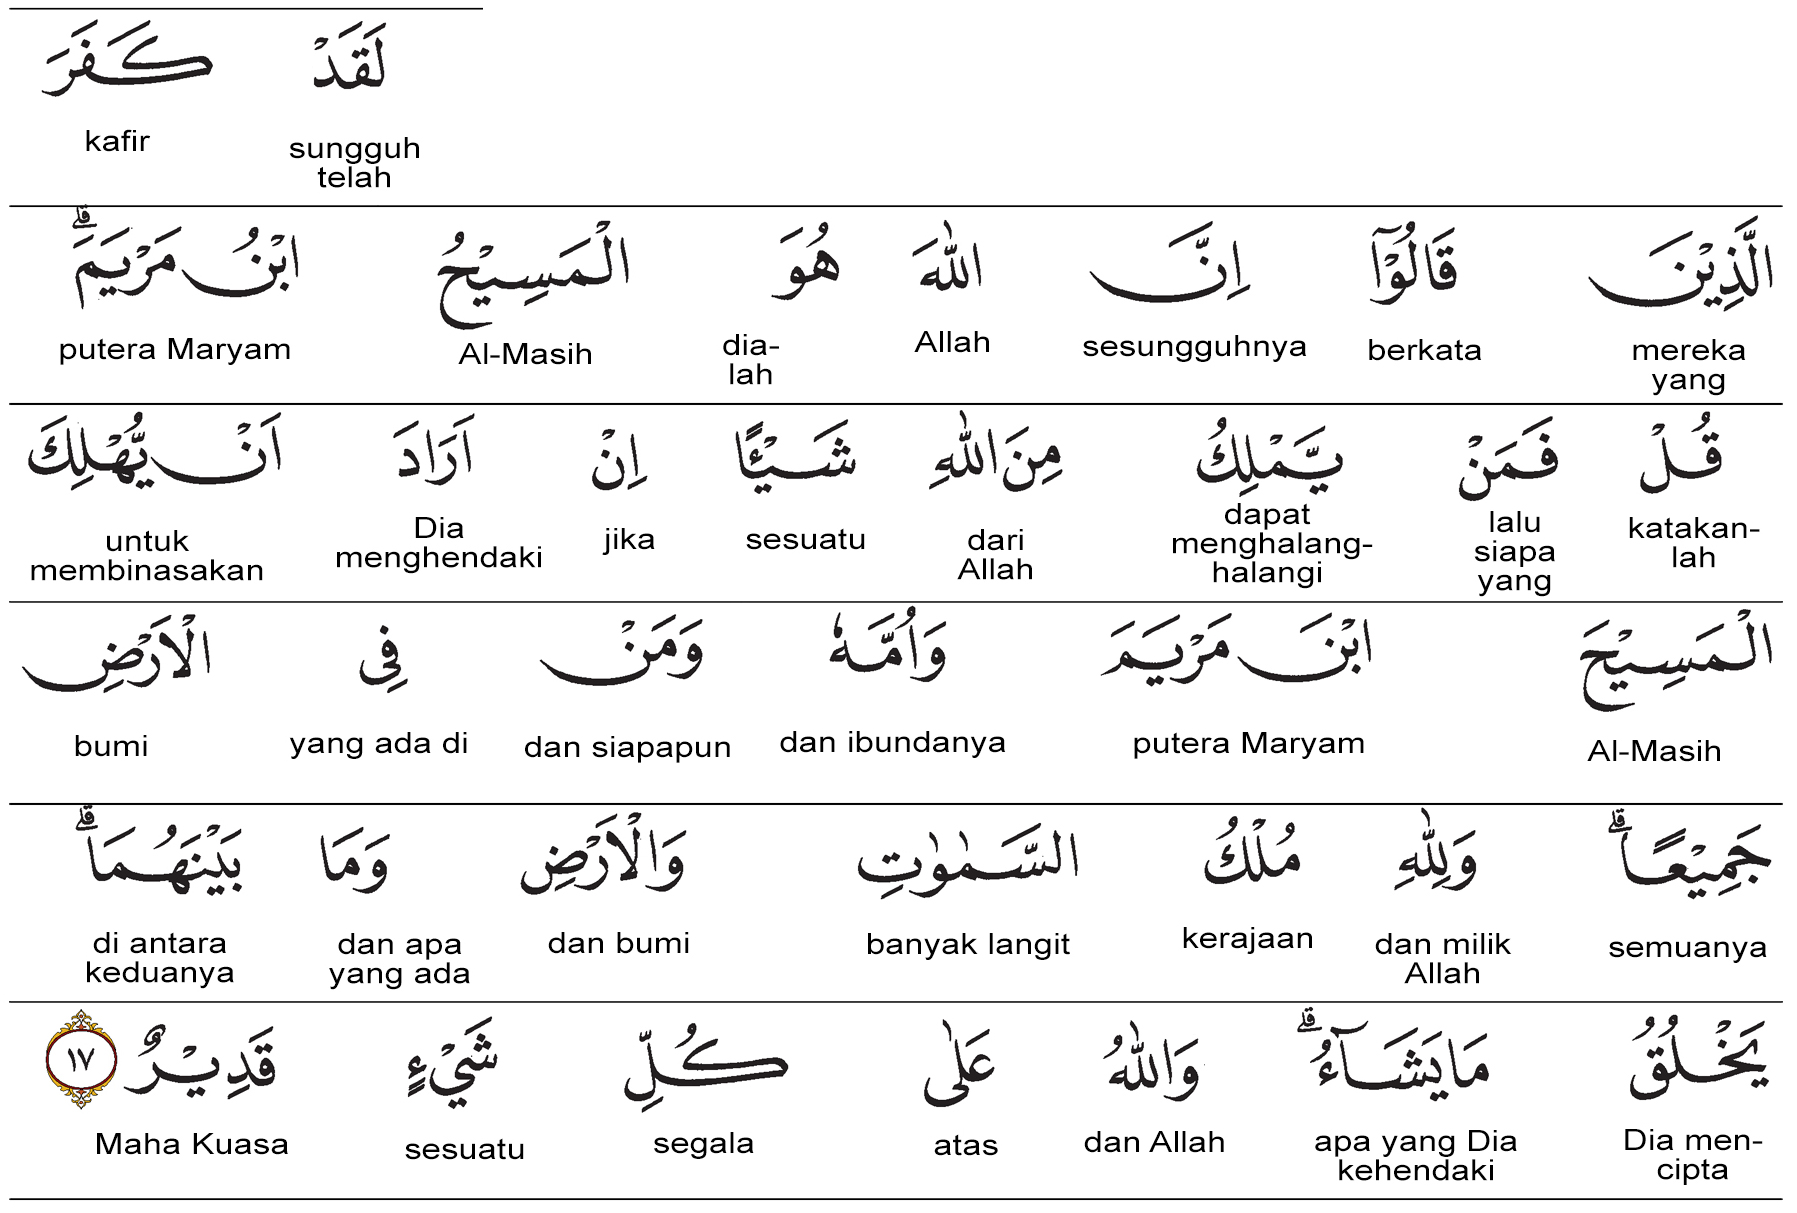 لَقَدْ كَفَرَ
sungguh telah kafir
الَّذِيْنَ قَالُوْٓا اِنَّ اللّٰهَ هُوَ الْمَسِيْحُ ابْنُ مَرْيَمَ ۗ
mereka yang berkata sesungguhnya Allah dia-lah Al-Masih putera Maryam
قُلْ فَمَنْ يَّمْلِكُ مِنَ اللّٰهِ شَيْـًٔا اِنْ اَرَادَ اَنْ يُّهْلِكَ
katakan-lah lalu siapa yang dapat menghalang-halangi dari Allah sesuatu jika Dia menghendaki untuk membinasakan
الْمَسِيْحَ ابْنَ مَرْيَمَ وَاُمَّهٗ وَمَنْ فِى الْاَرْضِ
Al-Masih putera Maryam dan ibundanya dan siapapun yang ada di bumi
جَمِيْعًا ۗ وَلِلّٰهِ مُلْكُ السَّمٰوٰتِ وَالْاَرْضِ وَمَا بَيْنَهُمَا ۗ
semuanya dan milik Allah kerajaan banyak langit dan bumi dan apa yang ada di antara keduanya
يَخْلُقُ مَا يَشَاۤءُ ۗ وَاللّٰهُ عَلٰى كُلِّ شَيْءٍ قَدِيْرٌ ١٧
Dia men-cipta apa yang Dia kehendaki dan Allah atas segala sesuatu Maha Kuasa